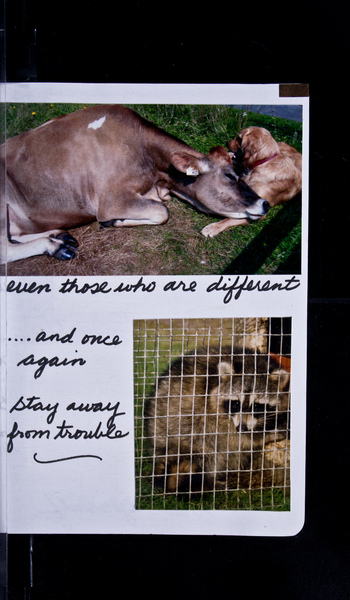 even those who are different
....and once
again
Stay away
from trouble